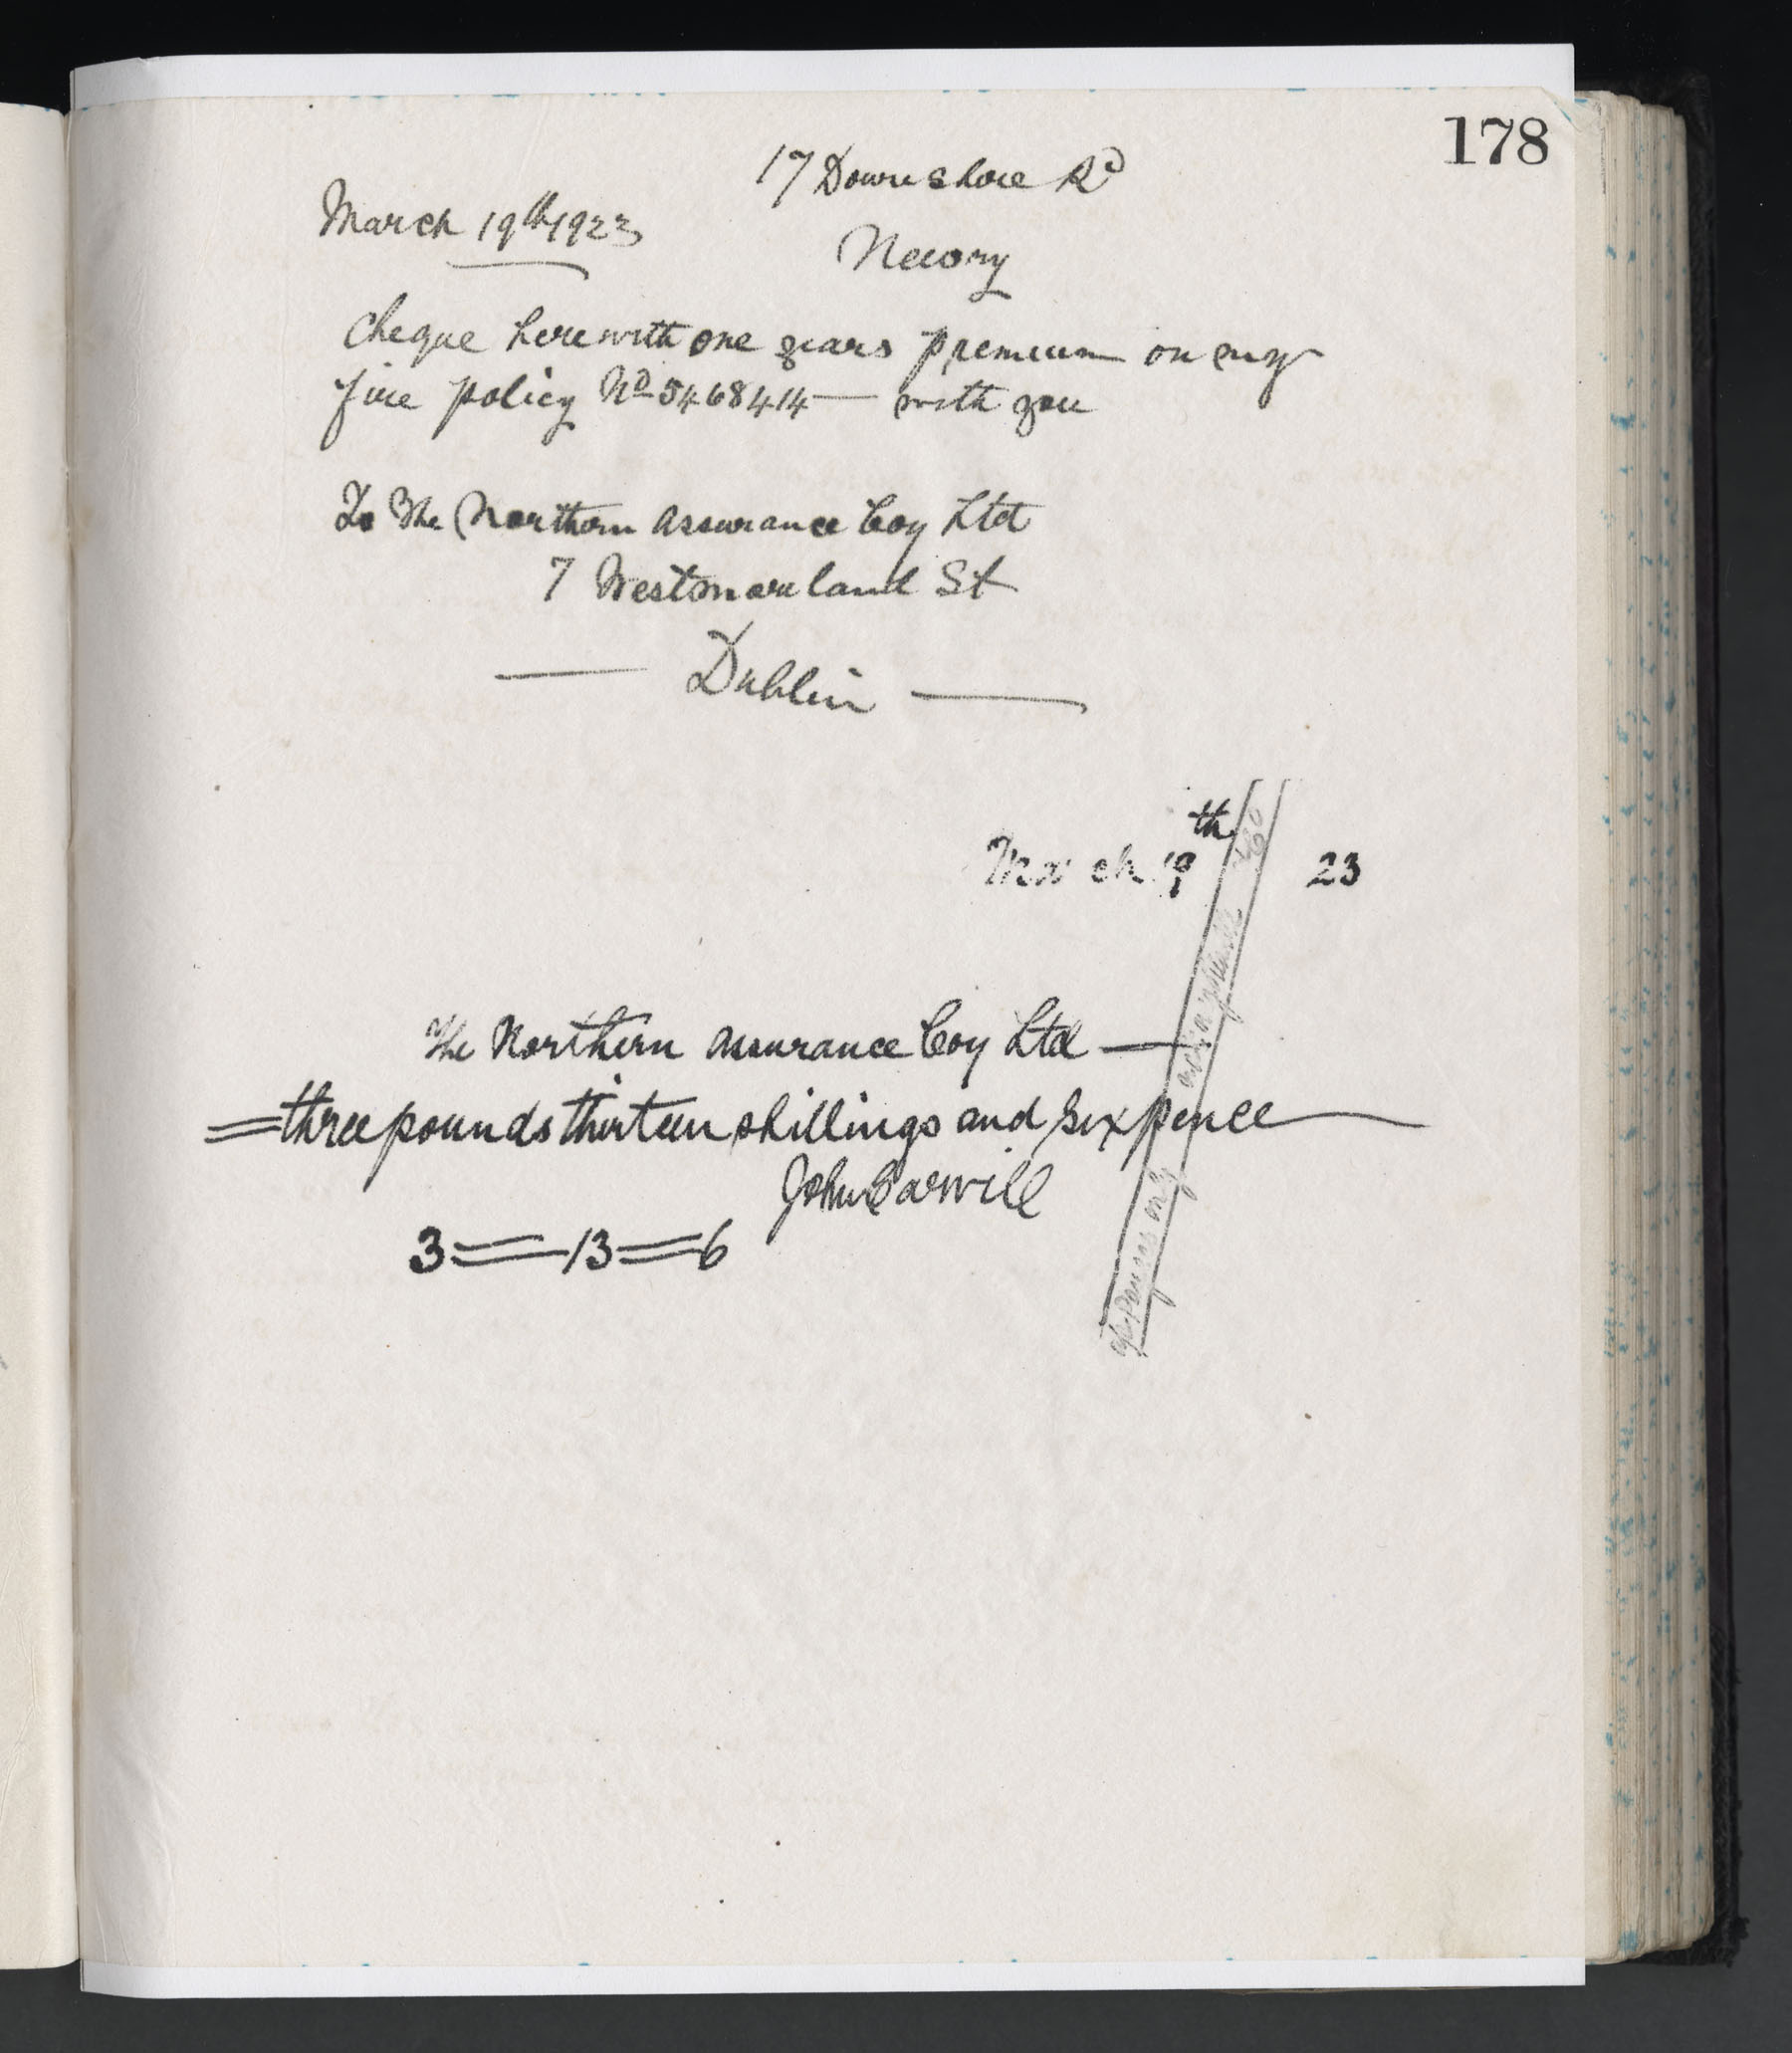 178
17 Downshire Rd
March 19th 1923
Newry
Cheque herewith one years premium on my
fire policy No 5468414 — with you
To The Northern Assurance Coy Ltd
7 Westmoreland St
— Dublin —
March 19th 23
The Northern Assurance Coy Ltd —
= three pounds thirteen shillings and six pence —
John Carvill
3 = 13 = 6
a/c Payees only